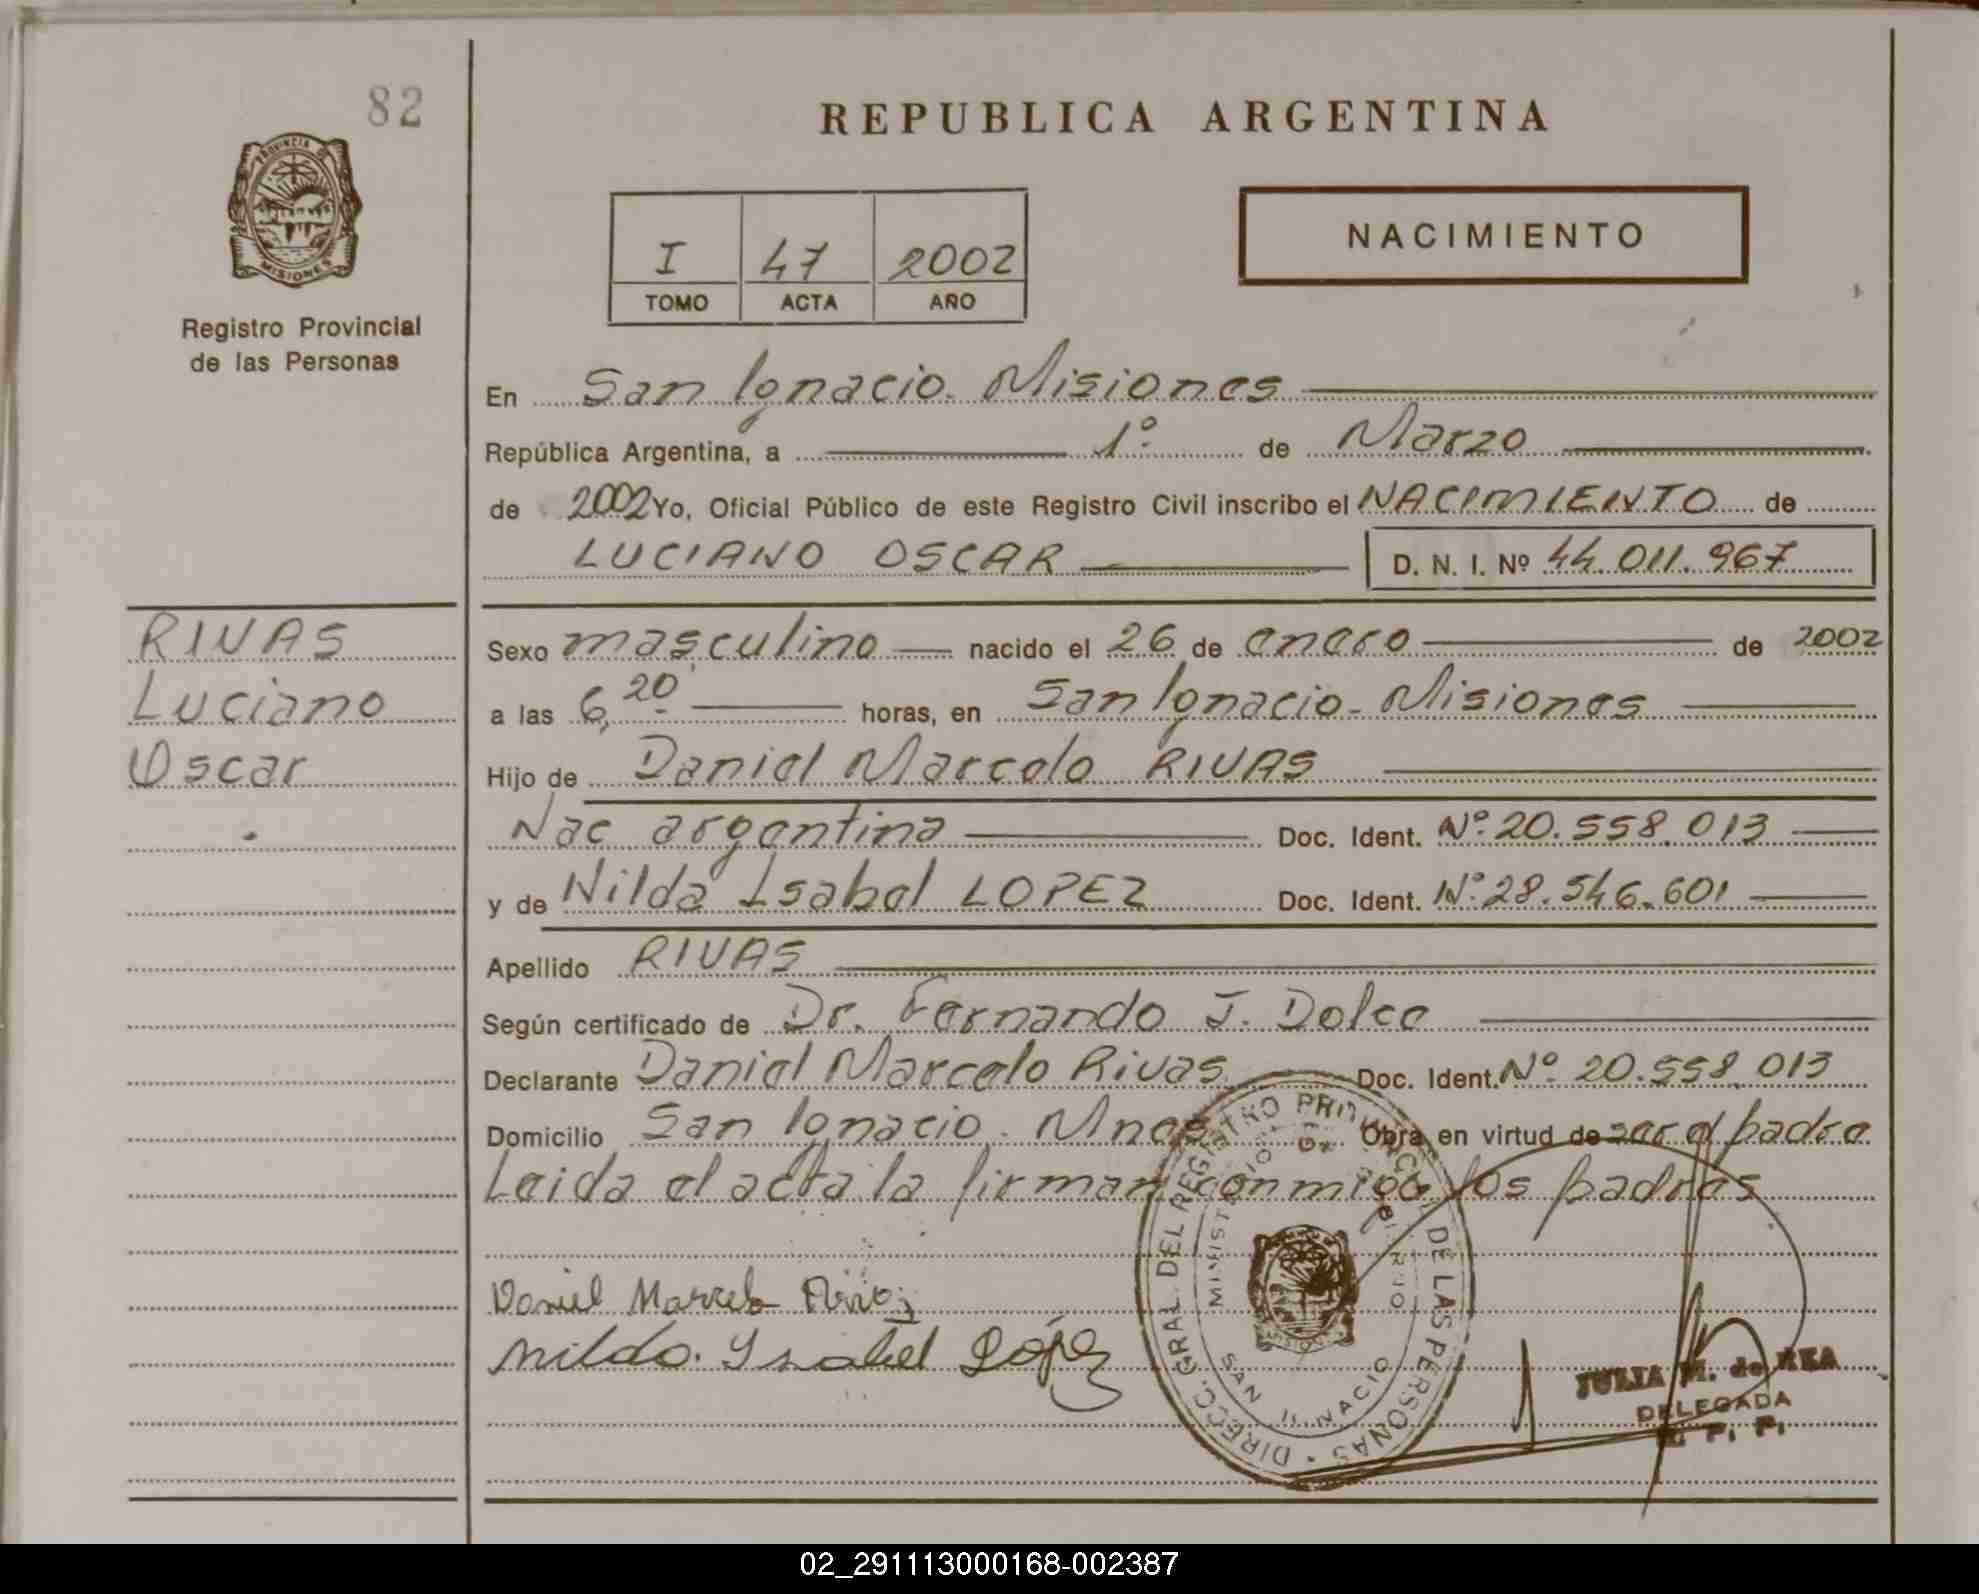 82
PROVINCIA DE
MISIONES
Registro Provincial
de las Personas
REPUBLICA ARGENTINA
I 47 2002
TOMO ACTA AÑO
NACIMIENTO
En San Ignacio - Misiones
República Argentina, a 1º de Marzo
de 2002 Yo, Oficial Público de este Registro Civil inscribo el NACIMIENTO de
LUCIANO OSCAR D. N. I. Nº 44.011.967
RIVAS
Luciano
Oscar
Sexo masculino nacido el 26 de enero de 2002
a las 6,20 horas, en San Ignacio - Misiones
Hijo de Daniel Marcelo RIVAS
Nac argentina Doc. Ident. Nº 20.558.013
y de Nilda Isabel LOPEZ Doc. Ident. Nº 28.546.601
Apellido RIVAS
Según certificado de Dr. Fernando J. Dolce
Declarante Daniel Marcelo Rivas Doc. Ident. Nº 20.558.013
Domicilio San Ignacio - Mnes Obra en virtud de ser el padre
Leida el acta la firman conmigo los padres
Daniel Marcelo Rivas
Nilda Ysabel López
DIRECC. GRAL. DEL REGISTRO PROVINCIAL DE LAS PERSONAS
MINISTERIO DE
SAN IGNACIO
JULIA M. de REA
DELEGADA
R. P. P.
02_291113000168-002387